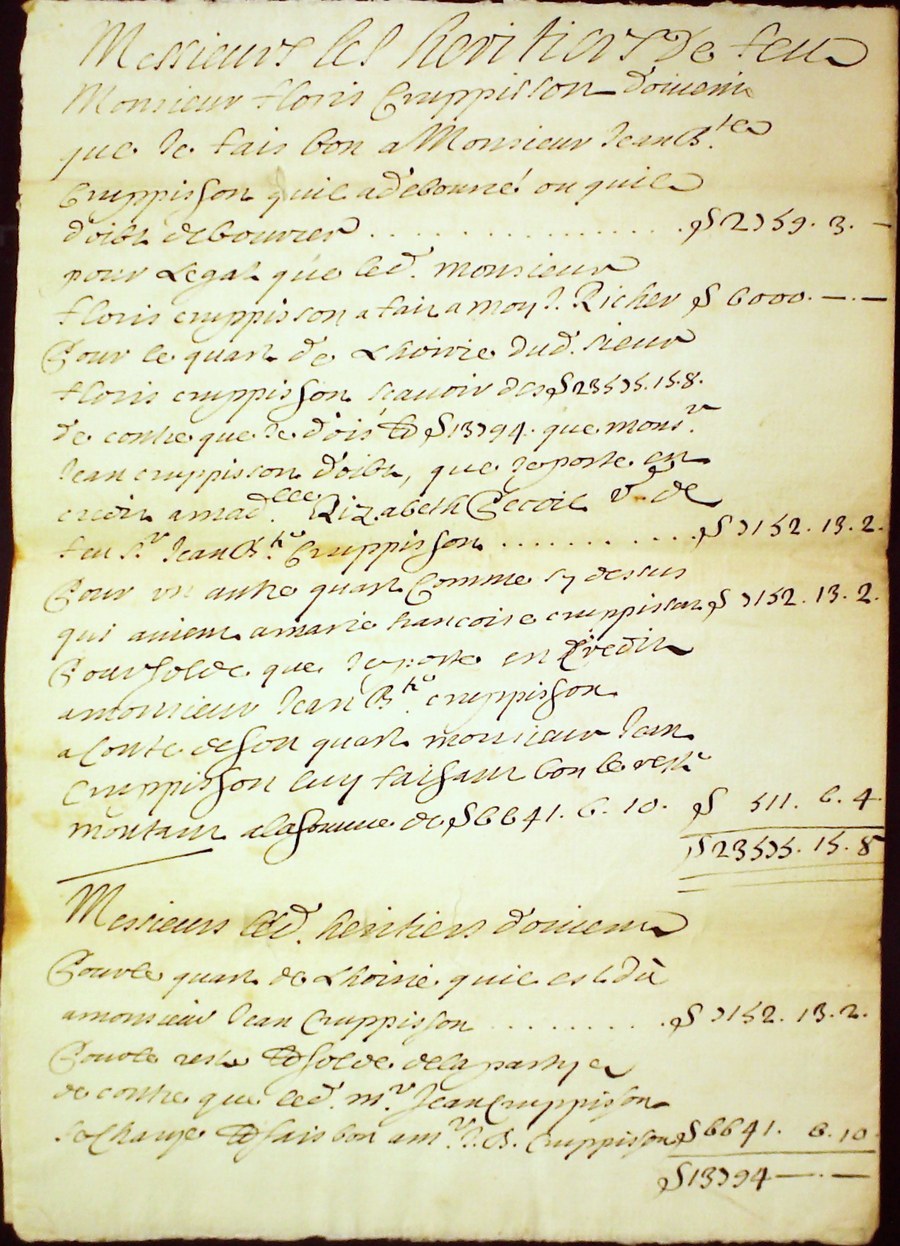 Messieurs les heritiers de feu
Monsieur floris Cruppisson doivent
que Je fais bon a Monsieur Jean B.te
Cruppisson quil a debourcé ou quil
doibt debourcer . . . . . . . . . . . . . . . . . . £ 2759. 3. —
pour Legat que led. monsieur
floris cruppisson a fait a moy J. Richer £ 6000. — . —
Pour le quart de Lhoirie dud. sieur
floris cruppisson scauoir des £ 23575. 15. 8.
de contre que Je dois et £ 13794. que mons.r
Jean cruppisson doibt, que Je porte en
credit a mad.lle Elizabeth v.e de
feu S.r Jean B.te Cruppisson . . . . . . . . . . . £ 7152. 13. 2.
Pour vn autre quart Comme cy dessus
qui auient a marie francoise cruppisson £ 7152. 13. 2.
Pour solde que Je porte en Credit
a monsieur Jean B.te cruppisson
a Conte de son quart monsieur Jean
Cruppisson luy faisant bon le reste
montant a la somme de £ 6641. 6. 10. £ 511. 6. 4
£ 23575. 15. 8
Messieurs lesd. heritiers doiuent
Pour le quart de Lhoirie quil est dû
a monsieur Jean Cruppisson . . . . . . . . . £ 7152. 13. 2.
Pour le reste et solde de la partye
de contre que led. m.r Jean Cruppisson
se Charge et fais bon a m.r J. B. Cruppisson £ 6641. 6. 10
£ 13794 — . —